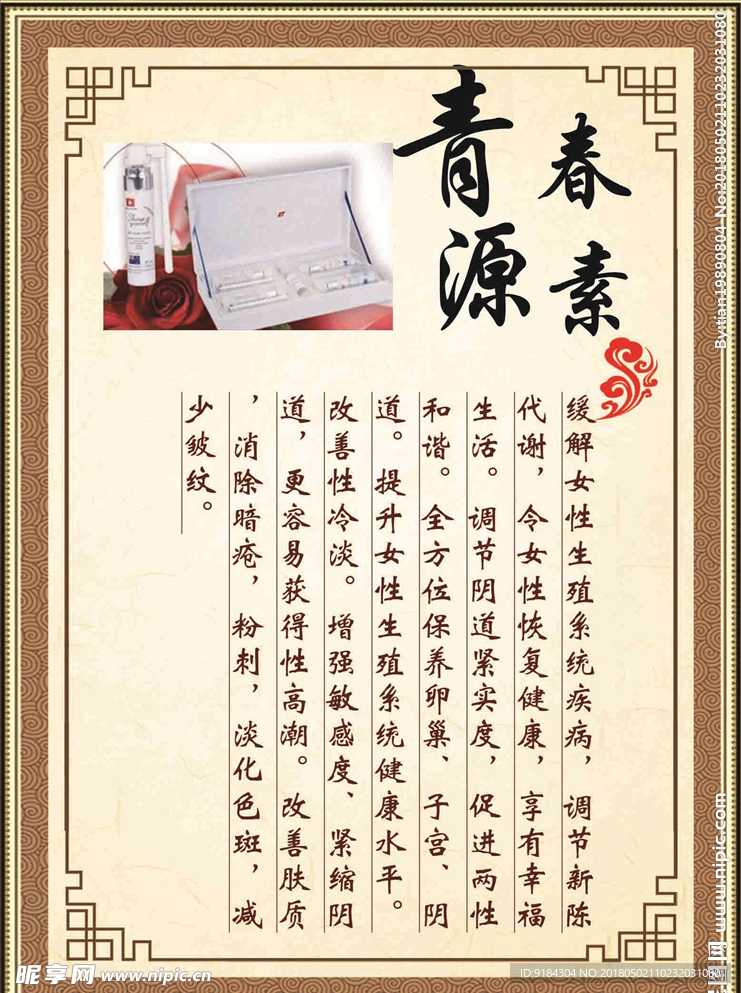 青春
源素
缓解女性生殖系统疾病，调节新陈
代谢，令女性恢复健康，享有幸福
生活。调节阴道紧实度，促进两性
和谐。全方位保养卵巢、子宫、阴
道。提升女性生殖系统健康水平。
改善性冷淡。增强敏感度、紧缩阴
道，更容易获得性高潮。改善肤质
，消除暗疮，粉刺，淡化色斑，减
少皱纹。
昵享网 www.nipic.cn
ID:9184304 NO:20180502110232031080
By:tian19890804 No:20180502110232031080
www.nipic.com